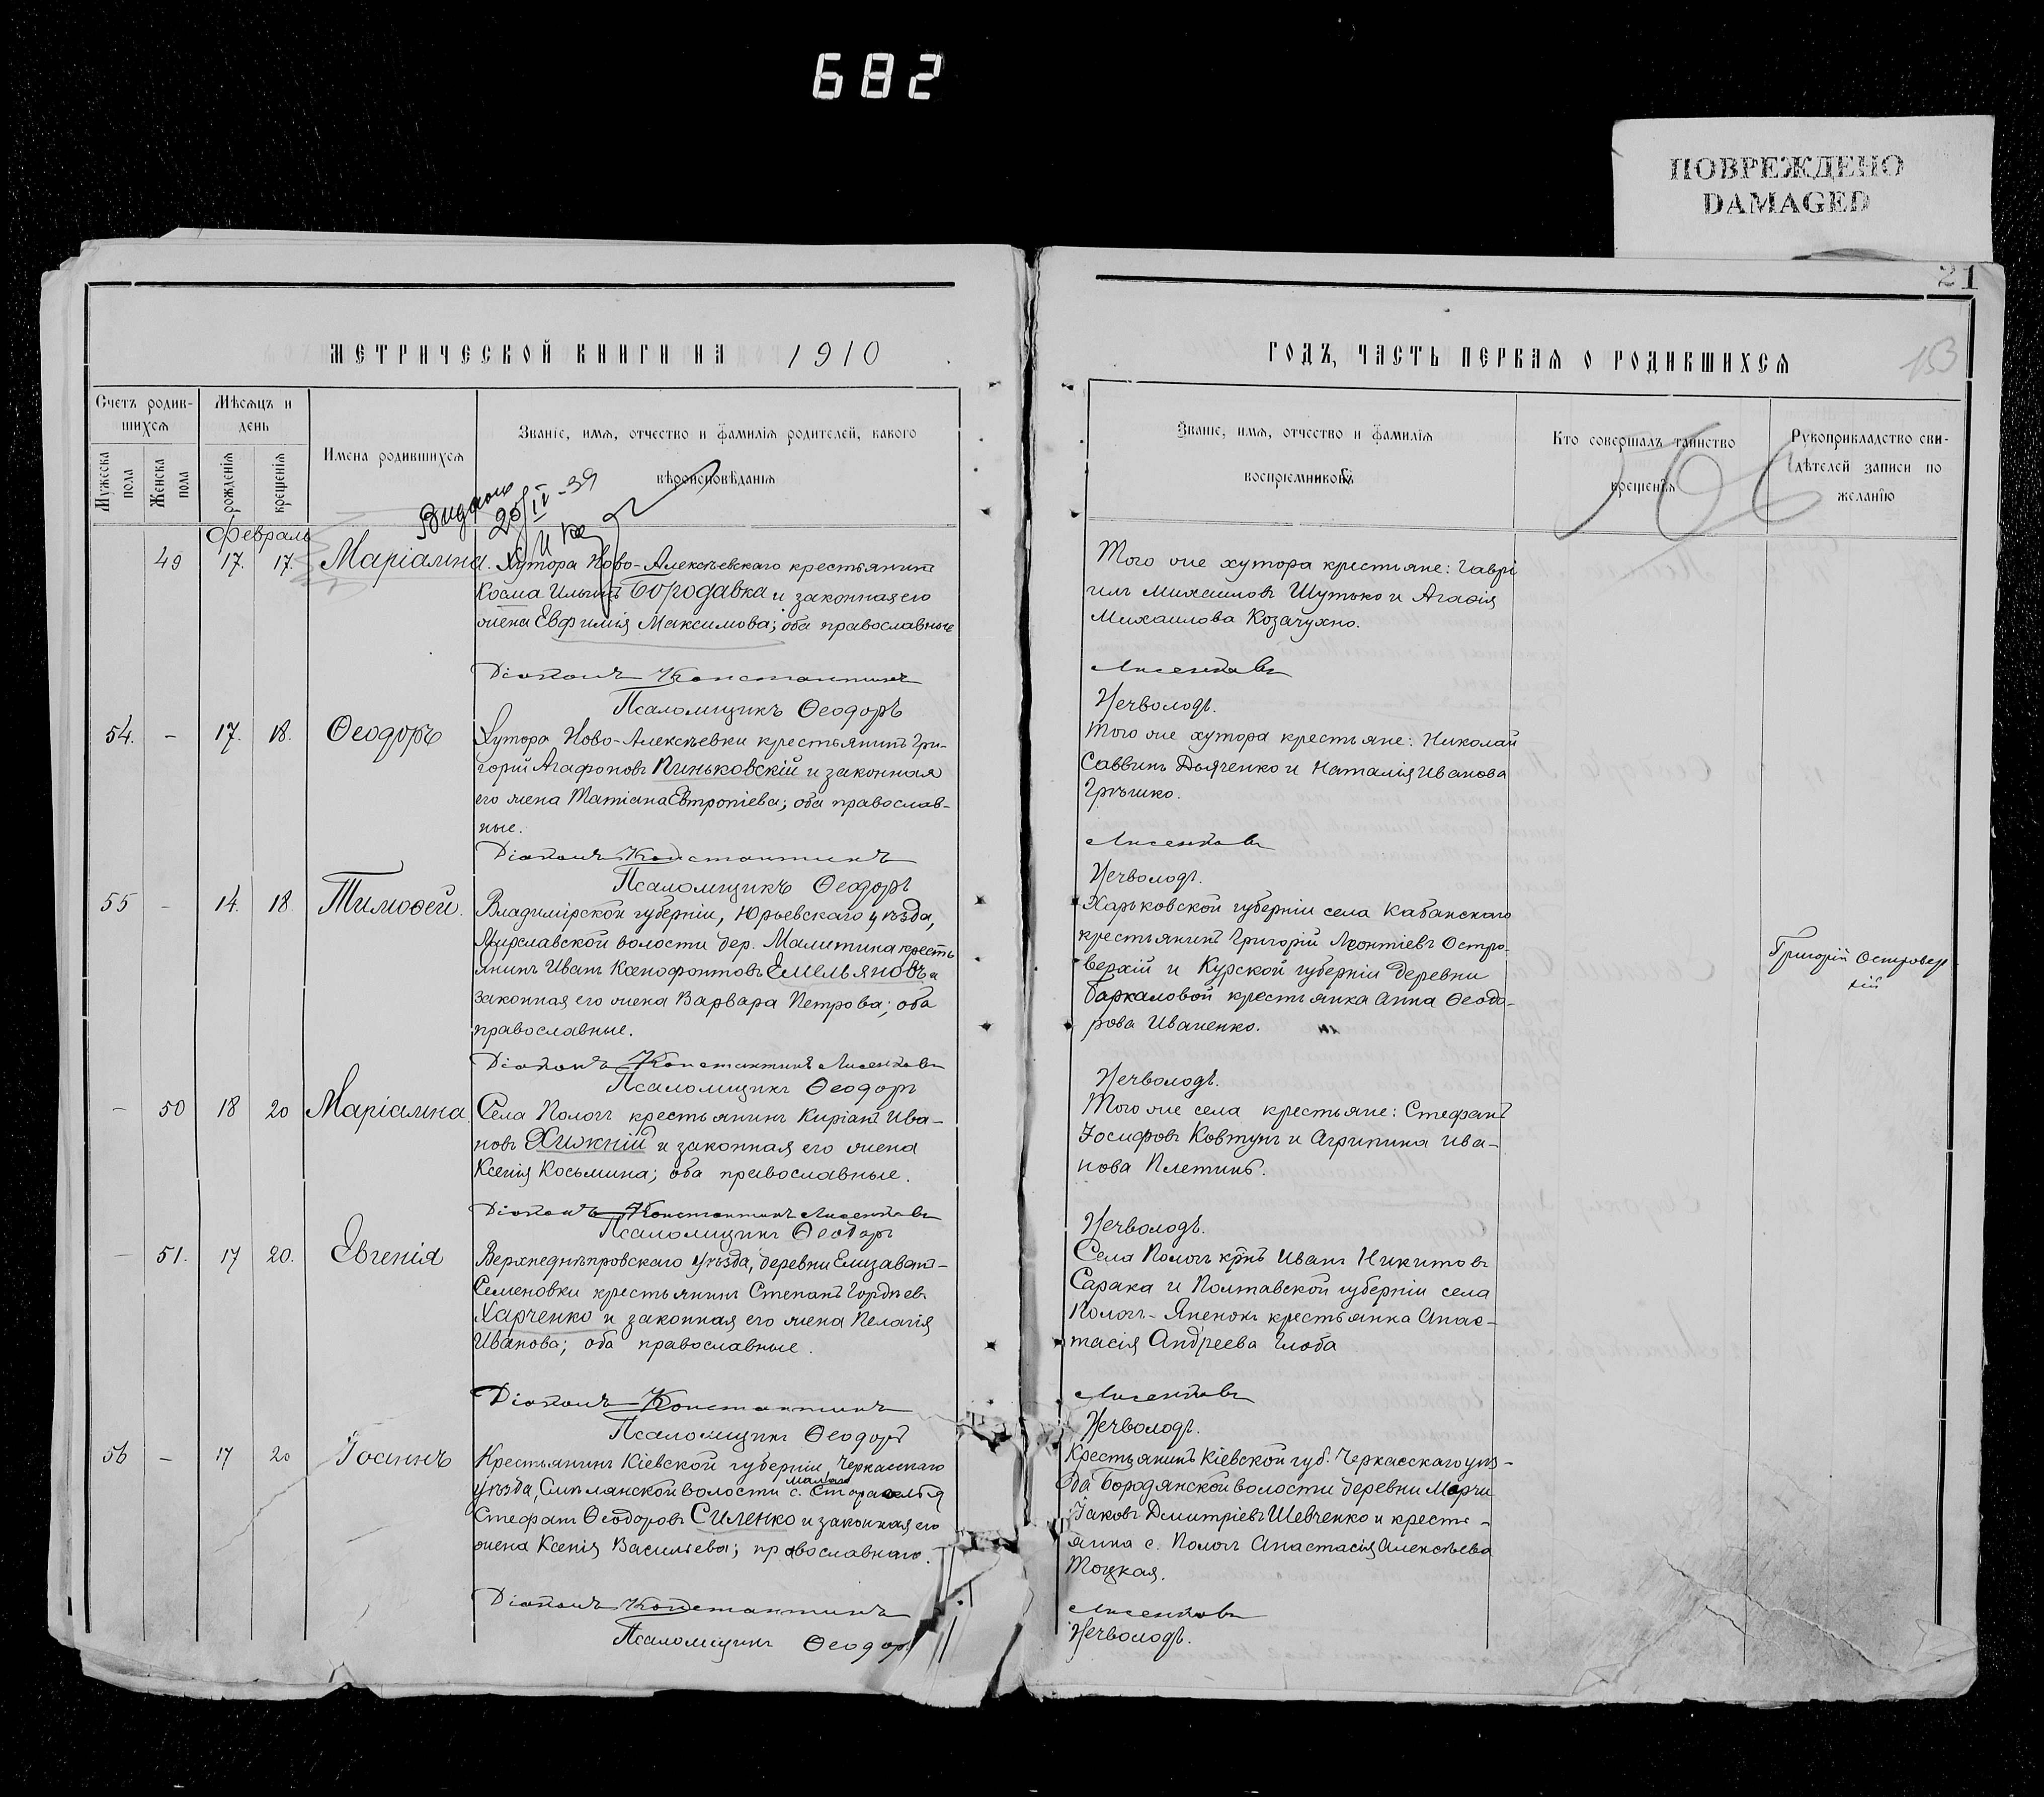 682
ПОВРЕЖДЕНО
DAMAGED
21
МЕТРИЧЕСКОЙ КНИГИ НА 1910
ГОДЪ, ЧАСТЬ ПЕРВАЯ О РОДИВШИХСЯ
153
Счетъ родив-
шихся
Мѣсяцъ и
день
Имена родившихся
Званіе, имя, отчество и фамилія родителей, какого
вѣроисповѣданія
Мужеска пола
Женска пола
рожденія
крещенія
Званіе, имя, отчество и фамилія
воспріемниковъ
Кто совершалъ таинство
крещенія
Рукоприкладство сви-
дѣтелей записи по
желанію
Видано
20/IV-39
Февраль
49 17. 17. Маріамна.
Хутора Ново-Алексѣевскаго крестьянинъ
Косма Ильинъ Бородавка и законная его
жена Евфимія Максимова; оба православные
Того же хутора крестьяне: Гаврі
илъ Михаиловъ Шутько и Агафія
Михаилова Козачухно.
Діаконъ Константинъ Лисенковъ
Псаломщикъ Ѳеодоръ Нечволодъ.
54. – 17. 18. Ѳеодоръ
Хутора Ново-Алексѣевки крестьянинъ Гри-
горій Агафоновъ Пиньковскій и законная
его жена Татіана Евтропіева; оба православ-
ные.
Того же хутора крестьяне: Николай
Саввинъ Дьяченко и Наталія Иванова
Гръшко.
Діаконъ Константинъ Лисенковъ
Псаломщикъ Ѳеодоръ Нечволодъ.
55 – 14. 18 Тимоѳей.
Владимірской губерніи, Юрьевскаго уѣзда,
волости дер. Малитина кресть
янинъ Иванъ Ксенофонтовъ Емельяновъ и
законная его жена Варвара Петрова; оба
православные.
Харьковской губерніи села Кабанскаго
крестьянинъ Григорій Леонтіевъ Остро-
верхій и Курской губерніи деревни
Баркаловой крестьянка Анна Ѳеодо-
рова Иваненко.
Григорій Островер
хій
Діаконъ Константинъ Лисенковъ
Псаломщикъ Ѳеодоръ Нечволодъ.
– 50 18 20 Маріамна.
Села Пологъ крестьянинъ Киріакъ Ива-
новъ Хижній и законная его жена
Ксенія Косьмина; оба православные.
Того же села крестьяне: Стефанъ
Іосифовъ Ковтунъ и Агрипина Ива-
нова Плетинь.
Діаконъ Константинъ Лисенковъ
Псаломщикъ Ѳеодоръ Нечволодъ.
– 51. 17 20. Евгенія
Верхнеднѣпровскаго уѣзда, деревни Елизавет-
Семеновки крестьянинъ Степанъ Гордѣевъ
Харченко и законная его жена Пелагія
Иванова; оба православные.
Села Пологъ крнъ Иванъ Никитовъ
Сарака и Полтавской губерніи села
Пологъ-Яненокъ крестьянка Анас-
тасія Андреева Глоба
Діаконъ Константинъ Лисенковъ
Псаломщикъ Ѳеодоръ Нечволодъ.
56 – 17 20 Іоаннъ
Крестьянинъ Кіевской губерніи Черкасскаго
уѣзда, Смѣлянской волости с. Малаго Староселья
Стефанъ Ѳеодоровъ Силенко и законная его
жена Ксенія Васильева; православнаго.
Крестьянинъ Кіевской губ. Черкасскаго уѣз-
да Бородянской волости деревни
Іаковъ Дмитріевъ Шевченко и кресть-
янка с. Пологъ Анастасія Алексѣева
Тоцкая.
Діаконъ Константинъ Лисенковъ
Псаломщикъ Ѳеодоръ Нечволодъ.